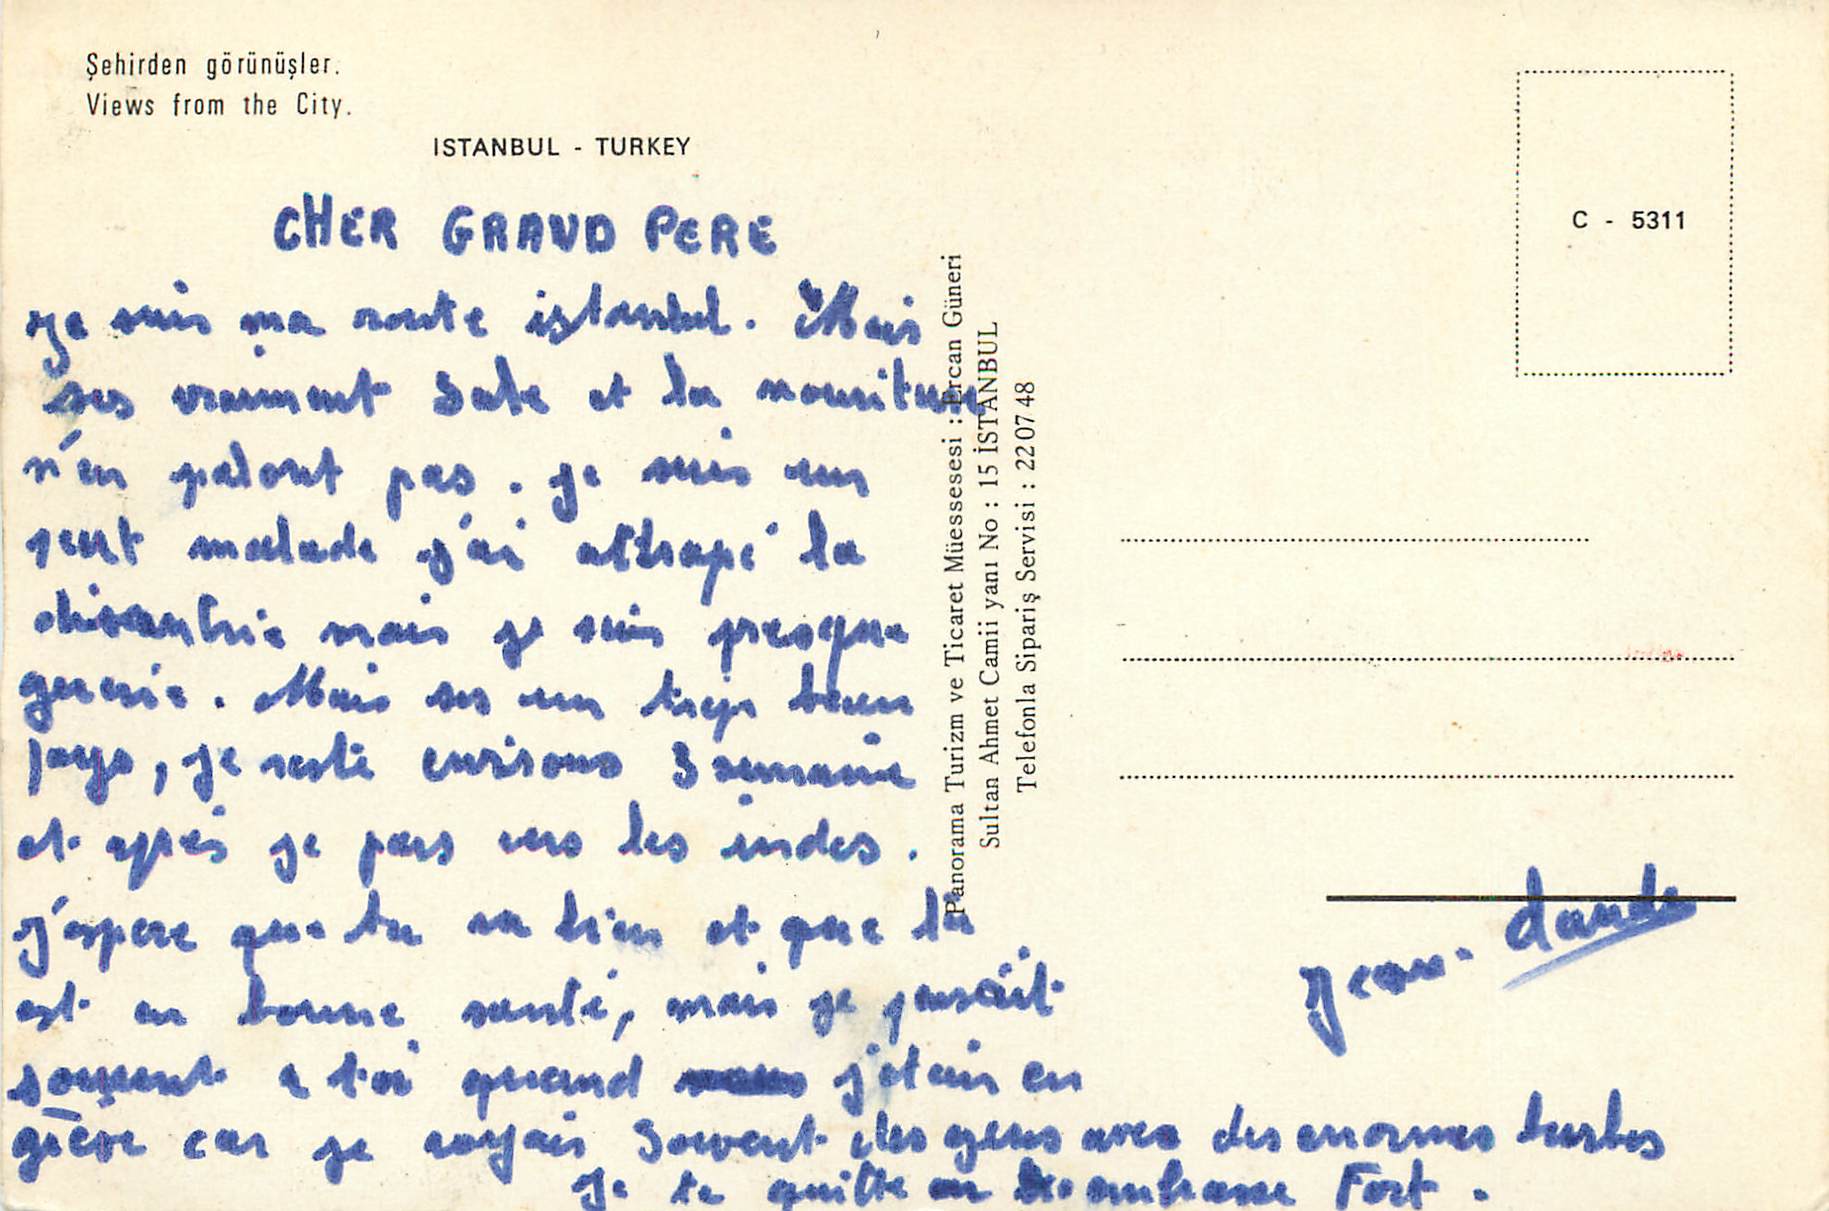 Şehirden görünüşler.
Views from the City.
ISTANBUL - TURKEY
C - 5311
CHER GRAND PERE
je suis ma route istanbul. Mais
ses vraiment sale et la nouriture
n'en parlont pas. je suis un
peut malade j'ai attrapé la
disentrie mais je suis presque
guerie. Mais ses un trop beau
pays, je reste environs 3 semaine
et après je pars vers les indes.
j'espere que tu va bien et que tu
est en bonne santé, mais je pensait
souvent a toi quand j'etais en
grèce car je voyais souvent des gens avec des enormes barbes
Je te quitte en te embrasse Fort.
Jean-daude
Panorama Turizm ve Ticaret Müessesesi : Ercan Güneri
Sultan Ahmet Camii yanı No : 15 İSTANBUL
Telefonla Sipariş Servisi : 22 07 48